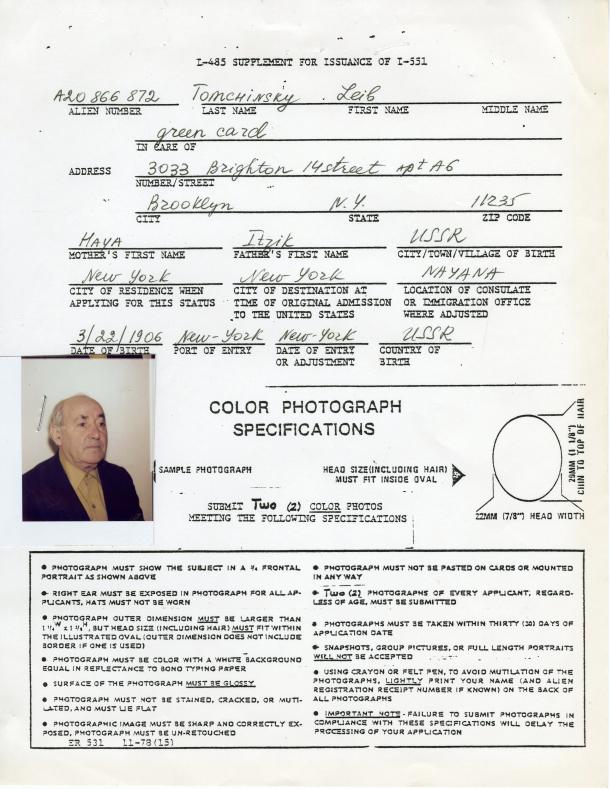 I-485 SUPPLEMENT FOR ISSUANCE OF I-551
A20 866 872 Tomchinsky Leib
ALIEN NUMBER LAST NAME FIRST NAME MIDDLE NAME
green card
IN CARE OF
ADDRESS 3033 Brighton 14 street apt A6
NUMBER/STREET
Brooklyn N.Y. 11235
CITY STATE ZIP CODE
HAYA Itzik USSR
MOTHER'S FIRST NAME FATHER'S FIRST NAME CITY/TOWN/VILLAGE OF BIRTH
New York New York NAYANA
CITY OF RESIDENCE WHEN CITY OF DESTINATION AT LOCATION OF CONSULATE
APPLYING FOR THIS STATUS TIME OF ORIGINAL ADMISSION OR IMMIGRATION OFFICE
TO THE UNITED STATES WHERE ADJUSTED
3/22/1906 New-York New-York USSR
DATE OF BIRTH PORT OF ENTRY DATE OF ENTRY COUNTRY OF
OR ADJUSTMENT BIRTH
COLOR PHOTOGRAPH
SPECIFICATIONS
SAMPLE PHOTOGRAPH HEAD SIZE(INCLUDING HAIR)
MUST FIT INSIDE OVAL
26MM (1 1/8")
CHIN TO TOP OF HAIR
22MM (7/8") HEAD WIDTH
SUBMIT Two (2) COLOR PHOTOS
MEETING THE FOLLOWING SPECIFICATIONS
● PHOTOGRAPH MUST SHOW THE SUBJECT IN A ¾ FRONTAL
PORTRAIT AS SHOWN ABOVE
● RIGHT EAR MUST BE EXPOSED IN PHOTOGRAPH FOR ALL AP-
PLICANTS, HATS MUST NOT BE WORN
● PHOTOGRAPH OUTER DIMENSION MUST BE LARGER THAN
1 ¼" W x 1 ¼" H, BUT HEAD SIZE (INCLUDING HAIR) MUST FIT WITHIN
THE ILLUSTRATED OVAL (OUTER DIMENSION DOES NOT INCLUDE
BORDER IF ONE IS USED)
● PHOTOGRAPH MUST BE COLOR WITH A WHITE BACKGROUND
EQUAL IN REFLECTANCE TO BOND TYPING PAPER
● SURFACE OF THE PHOTOGRAPH MUST BE GLOSSY
● PHOTOGRAPH MUST NOT BE STAINED, CRACKED, OR MUTI-
LATED, AND MUST LIE FLAT
● PHOTOGRAPHIC IMAGE MUST BE SHARP AND CORRECTLY EX-
POSED, PHOTOGRAPH MUST BE UN-RETOUCHED
ER 531 11-78(15)
● PHOTOGRAPH MUST NOT BE PASTED ON CARDS OR MOUNTED
IN ANY WAY
● Two (2) PHOTOGRAPHS OF EVERY APPLICANT, REGARD-
LESS OF AGE, MUST BE SUBMITTED
● PHOTOGRAPHS MUST BE TAKEN WITHIN THIRTY (30) DAYS OF
APPLICATION DATE
● SNAPSHOTS, GROUP PICTURES, OR FULL LENGTH PORTRAITS
WILL NOT BE ACCEPTED
● USING CRAYON OR FELT PEN, TO AVOID MUTILATION OF THE
PHOTOGRAPHS, LIGHTLY PRINT YOUR NAME (AND ALIEN
REGISTRATION RECEIPT NUMBER IF KNOWN) ON THE BACK OF
ALL PHOTOGRAPHS
● IMPORTANT NOTE - FAILURE TO SUBMIT PHOTOGRAPHS IN
COMPLIANCE WITH THESE SPECIFICATIONS WILL DELAY THE
PROCESSING OF YOUR APPLICATION